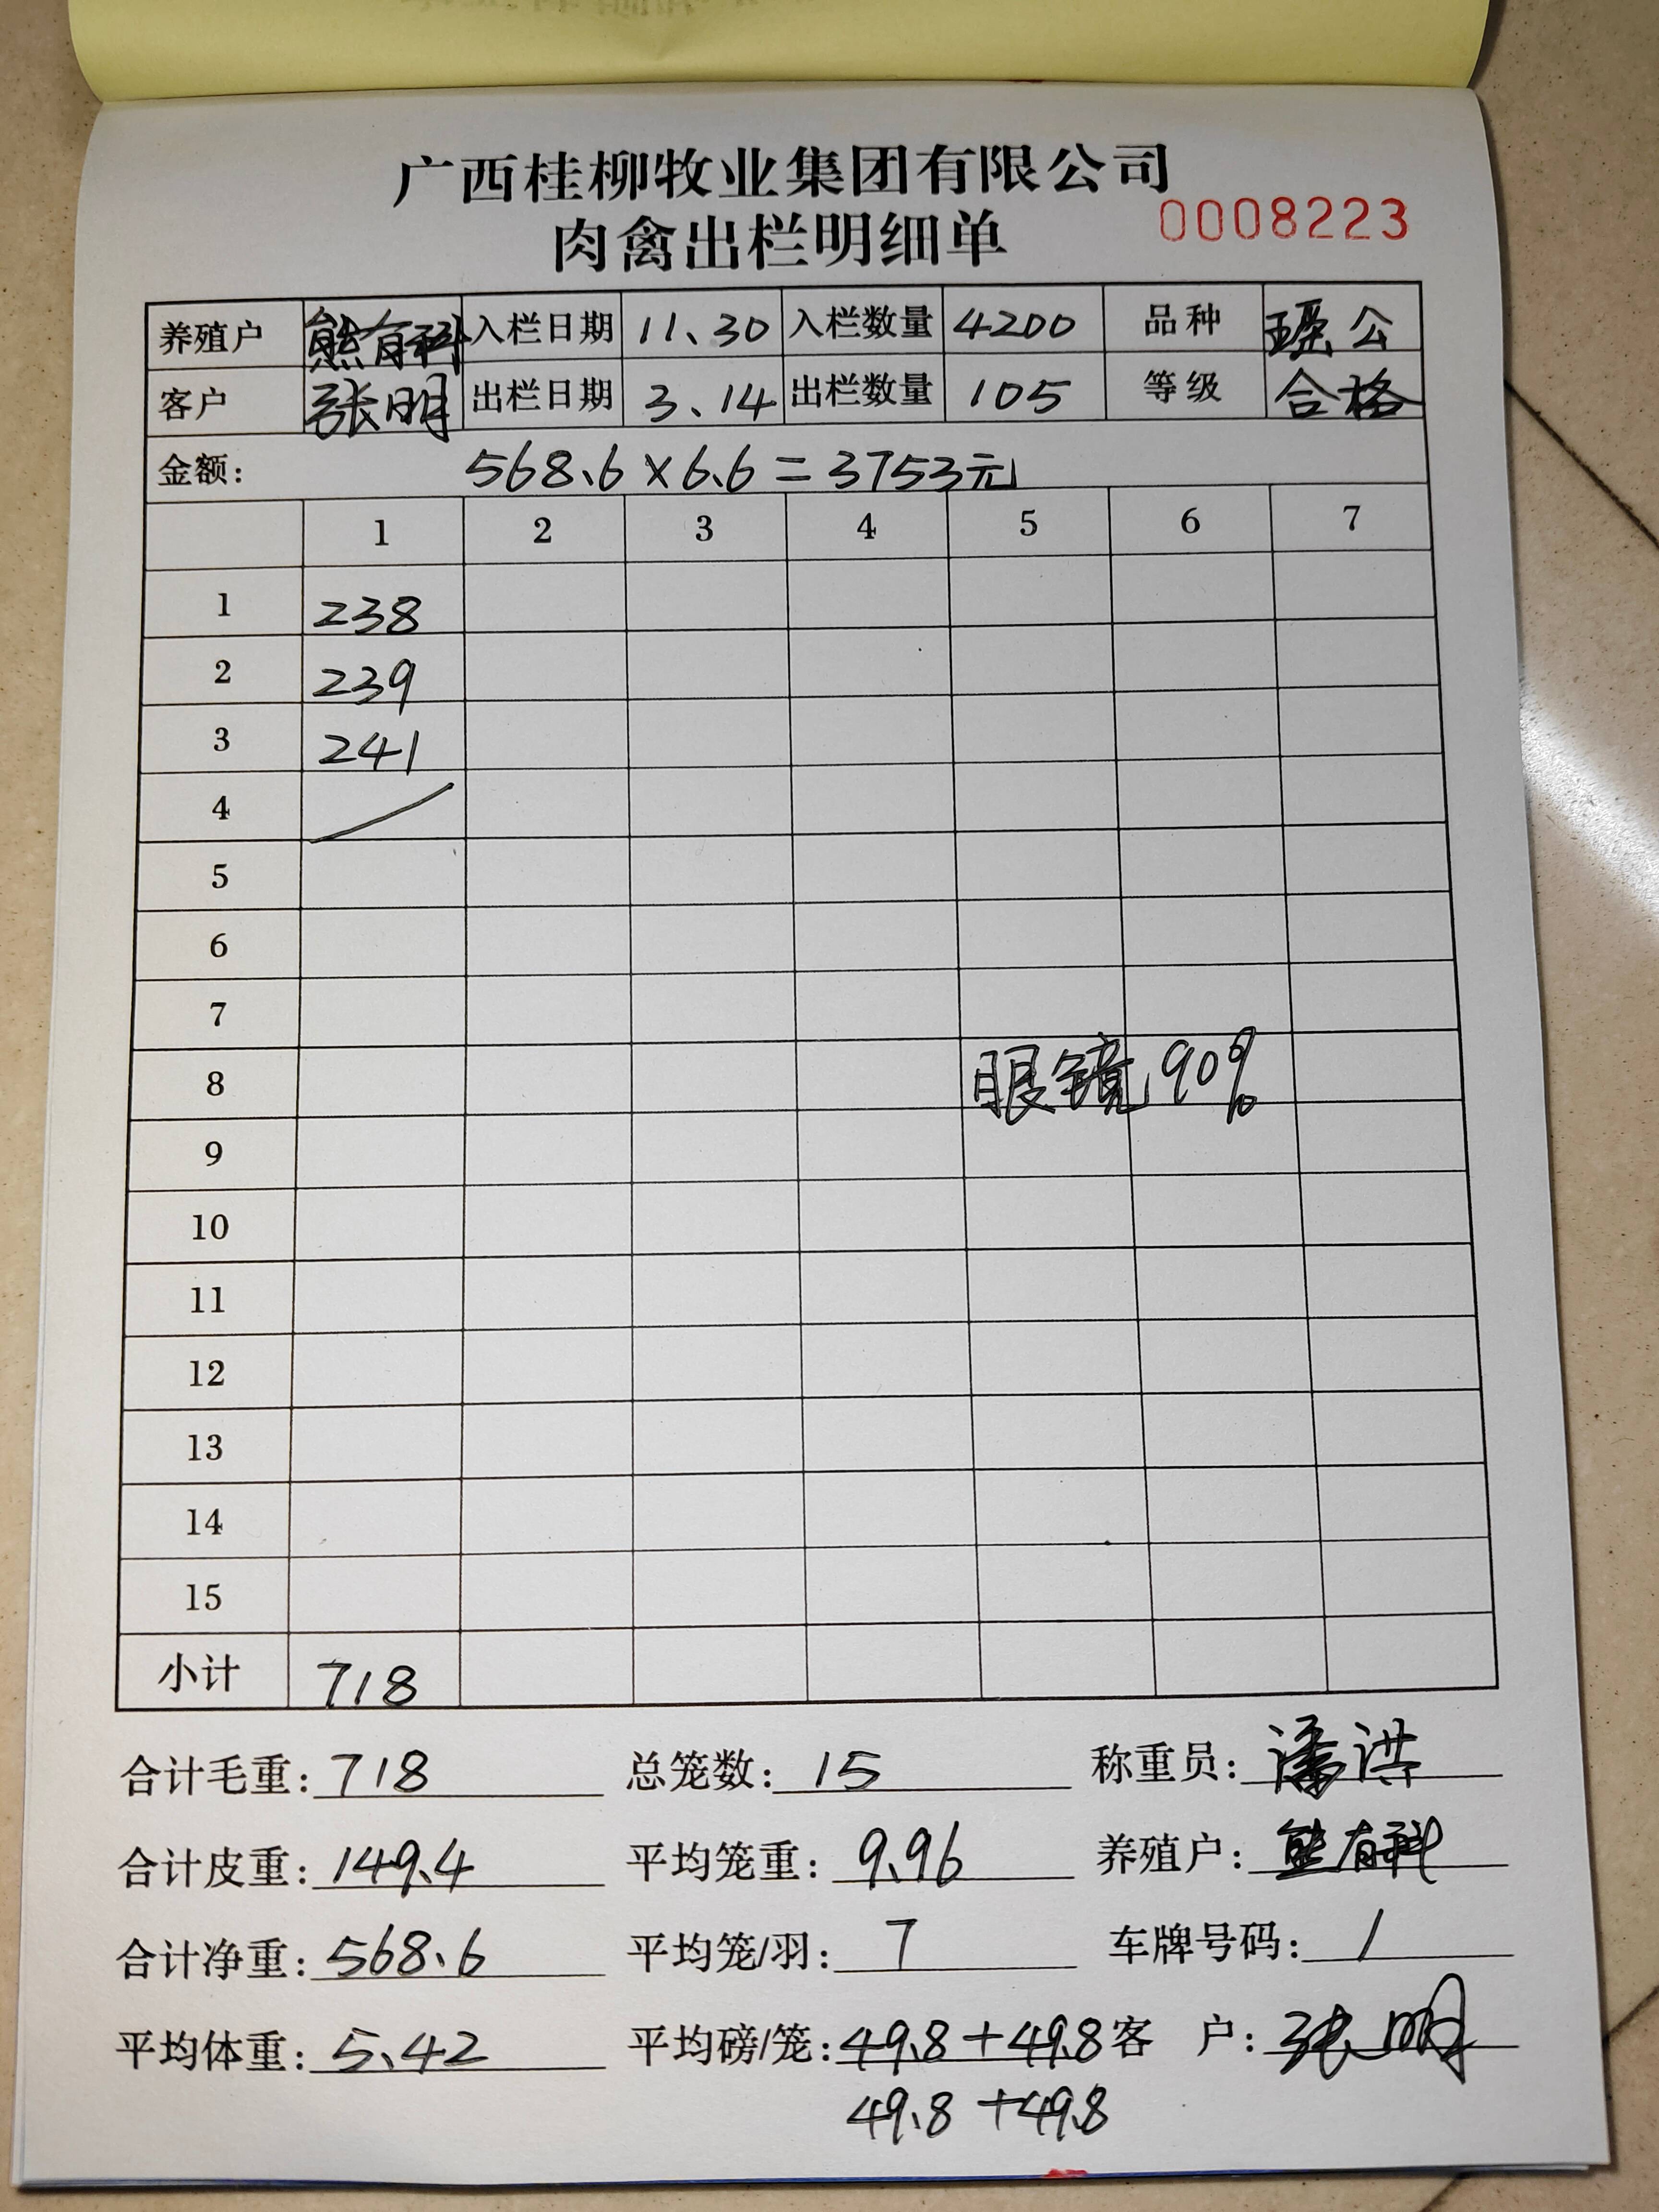 广西桂柳牧业集团有限公司
肉禽出栏明细单 0008223
养殖户 熊有科 入栏日期 11、30 入栏数量 4200 品种 瑶公
客户 张明 出栏日期 3、14 出栏数量 105 等级 合格
金额: 568.6×6.6=3753元
1 2 3 4 5 6 7
1 238
2 239
3 241
4
5
6
7
8 眼镜90%
9
10
11
12
13
14
15
小计 718
合计毛重: 718 总笼数: 15 称重员: 潘洪
合计皮重: 149.4 平均笼重: 9.96 养殖户: 熊有科
合计净重: 568.6 平均笼/羽: 7 车牌号码: /
平均体重: 5.42 平均磅/笼: 49.8+49.8 客 户: 张明
49.8+49.8